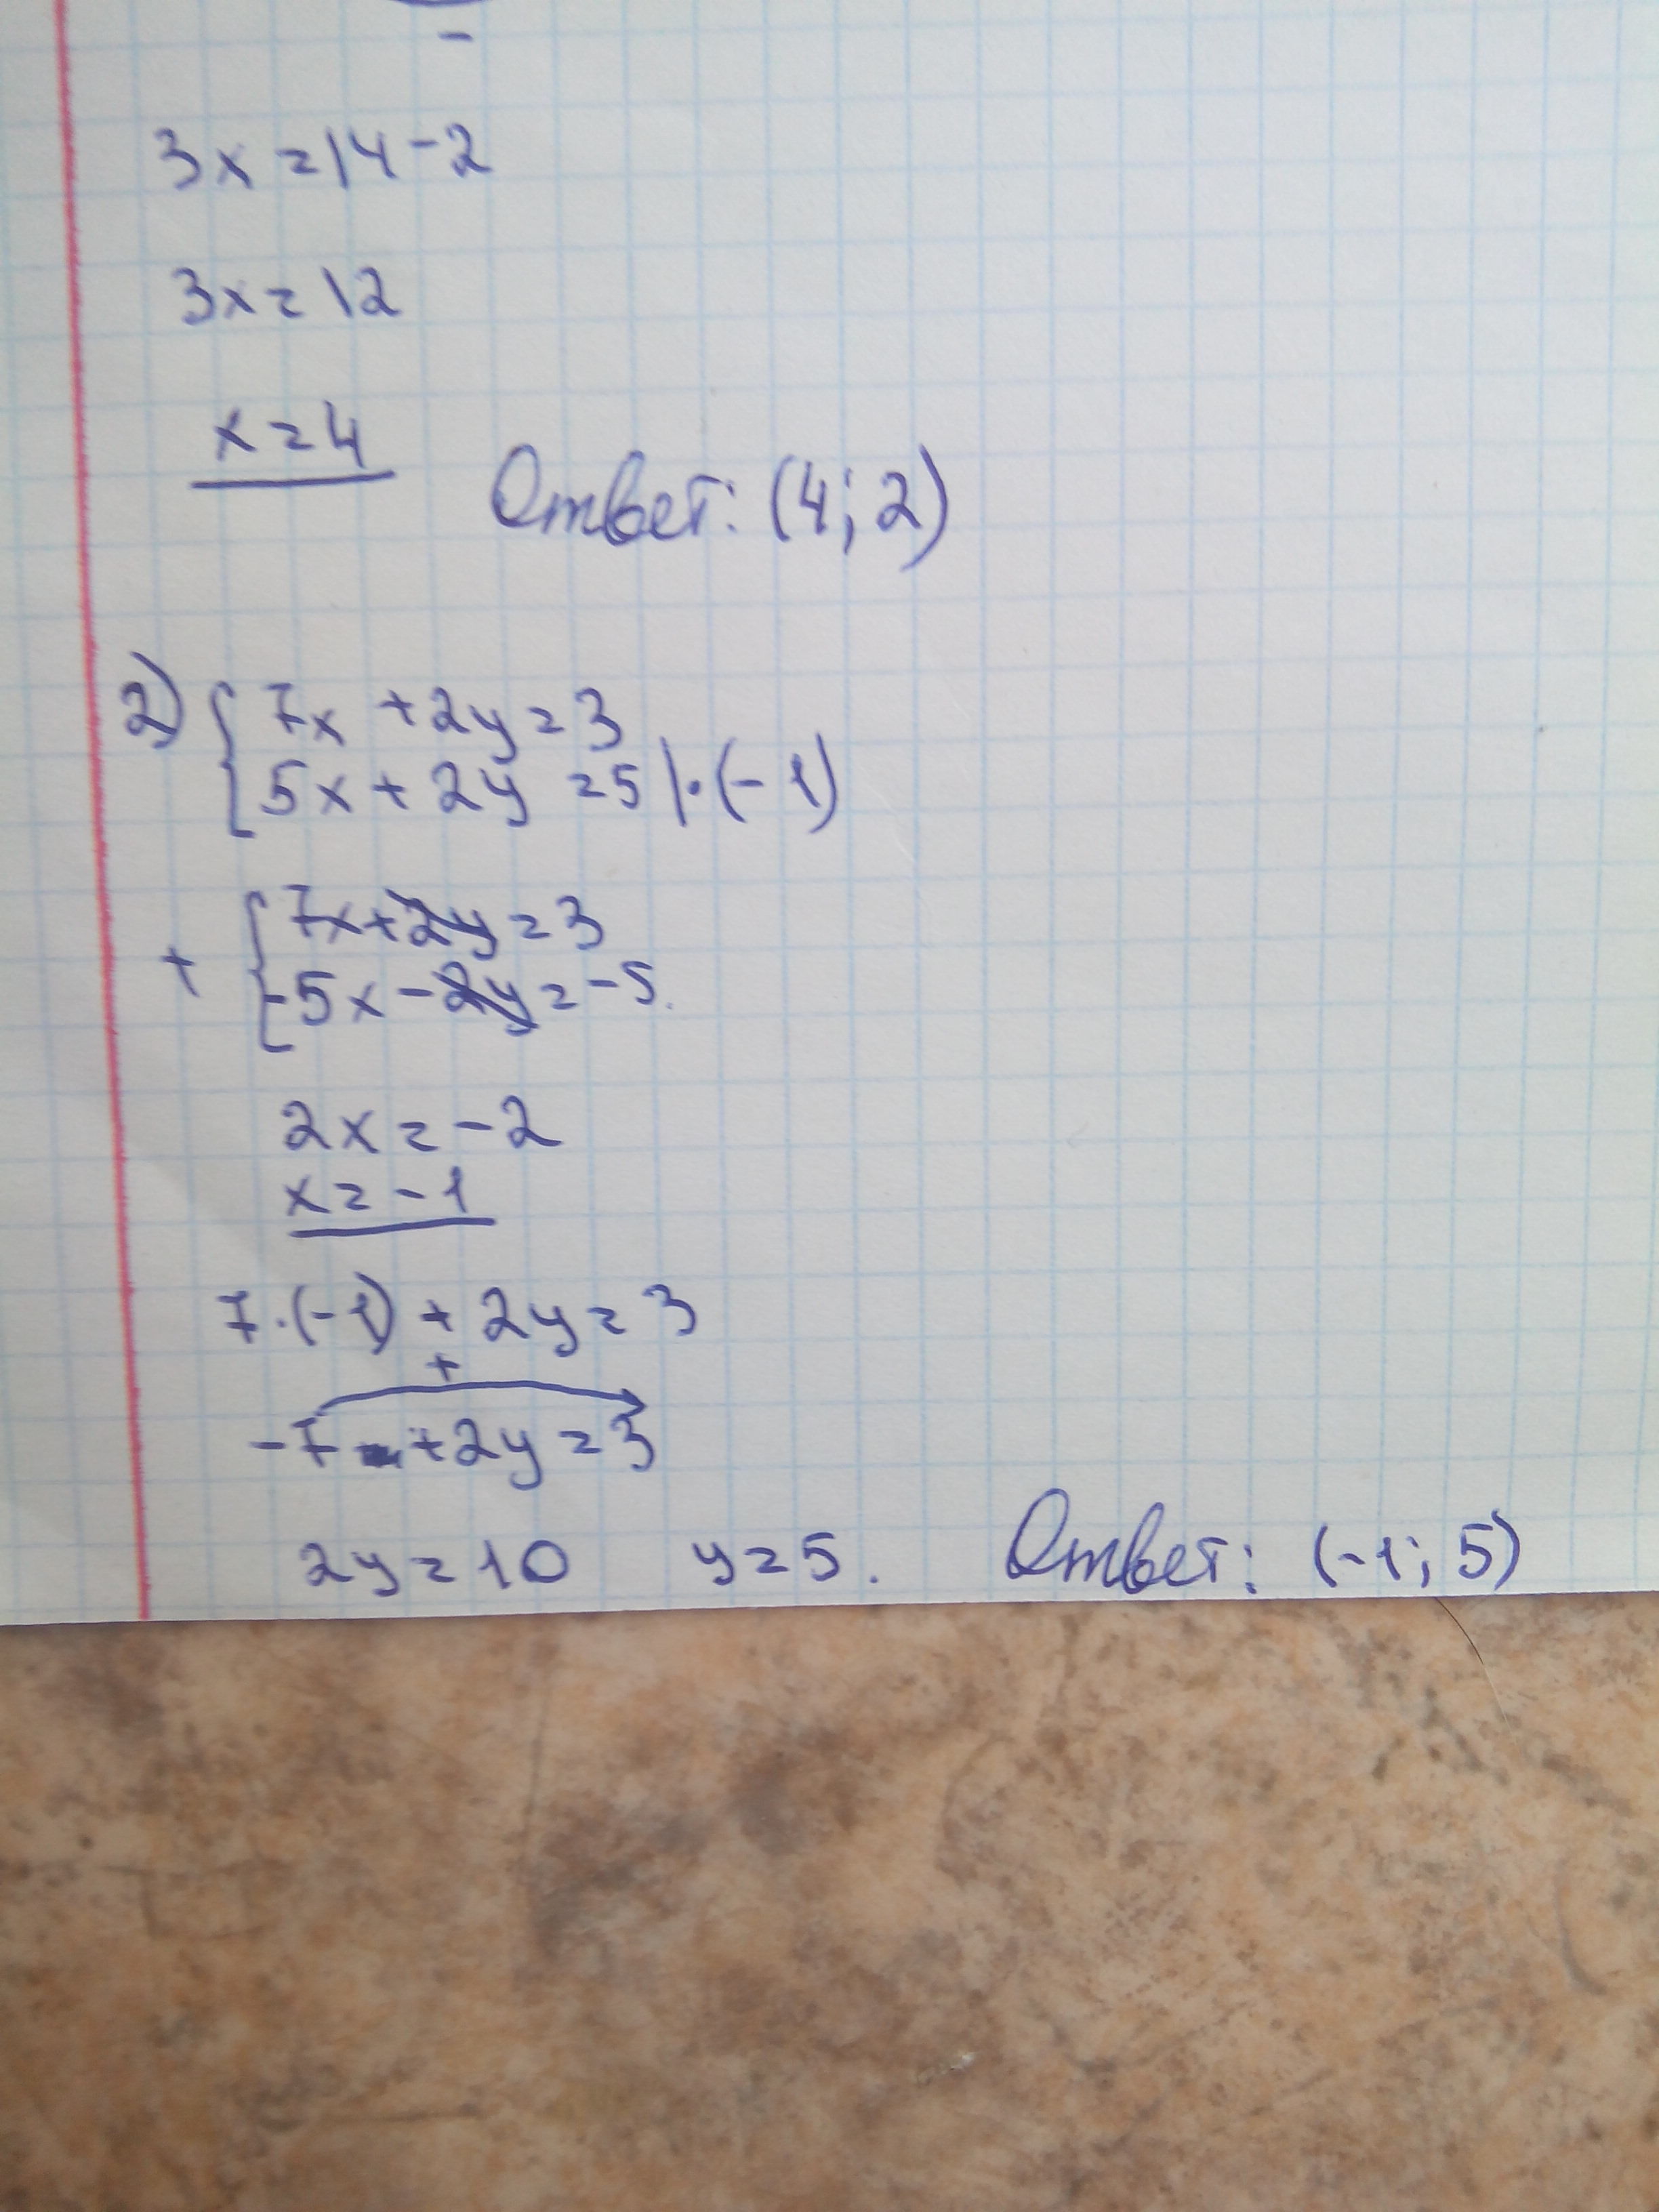 3x=14-2
3x=12
x=4 Ответ: (4; 2)
2) {7x +2y=3
5x+2y =5 |·(-1)
+ {7x+2y=3
-5x-2y=-5.
2x=-2
x=-1
7·(-1) + 2y=3
+
-7 +2y=3
2y=10 y=5. Ответ: (-1; 5)